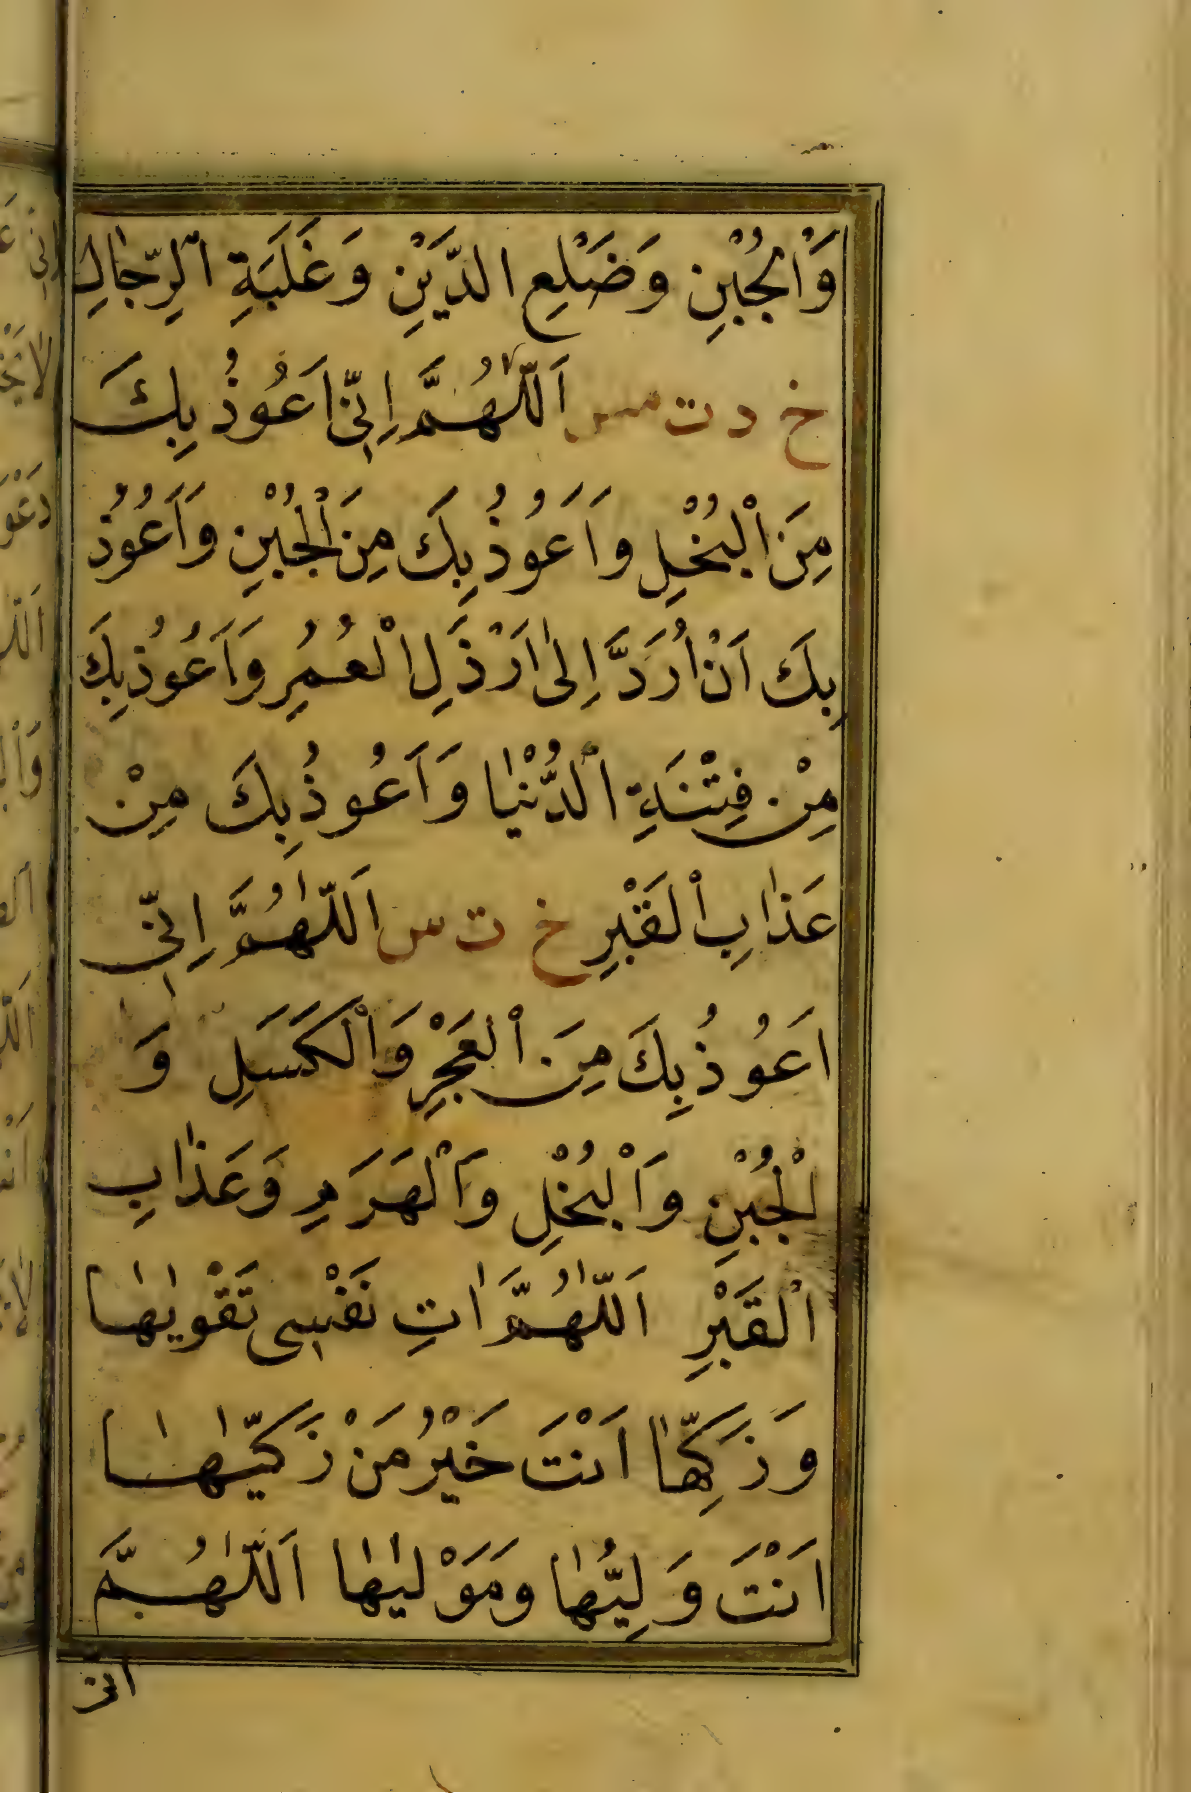 وَالْجُبْنِ وَضَلْعِ الدَّيْنِ وَغَلَبَةِ الرِّجَالِ
خ د ت مس اَللّٰهُمَّ اِنّٖى اَعُوذُ بِكَ
مِنَ الْبُخْلِ وَاَعُوذُ بِكَ مِنَ الْجُبْنِ وَاَعُوذُ
بِكَ اَنْ اُرَدَّ اِلٰى اَرْذَلِ الْعُمُرِ وَاَعُوذُ بِكَ
مِنْ فِتْنَةِ الدُّنْيَا وَاَعُوذُ بِكَ مِنْ
عَذَابِ الْقَبْرِ خ ت س اَللّٰهُمَّ اِنّٖى
اَعُوذُ بِكَ مِنَ الْعَجْزِ وَالْكَسَلِ وَ
الْجُبْنِ وَالْبُخْلِ وَالْهَرَمِ وَعَذَابِ
الْقَبْرِ اَللّٰهُمَّ اٰتِ نَفْسٖى تَقْوٰيهَا
وَزَكِّهَا اَنْتَ خَيْرُ مَنْ زَكّٰيهَا
اَنْتَ وَلِيُّهَا وَمَوْلٰيهَا اَللّٰهُمَّ